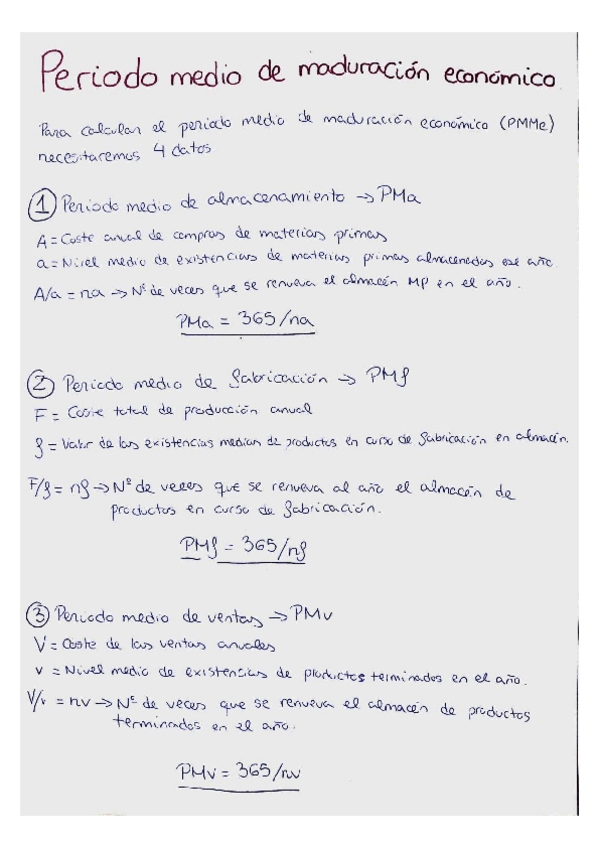 Periodo medio de maduración económico
Para calcular el periodo medio de maduración económico (PMMe)
necesitaremos 4 datos
① Periodo medio de almacenamiento → PMa
A = Coste anual de compras de materias primas
a = Nivel medio de existencias de materias primas almacenadas ese año.
A/a = na → Nº de veces que se renueva el almacén MP en el año.
PMa = 365/na
② Periodo medio de fabricación → PMf
F = Coste total de producción anual
f = Valor de las existencias medias de productos en curso de fabricación en almacén.
F/f = nf → Nº de veces que se renueva al año el almacén de
productos en curso de fabricación.
PMf = 365/nf
③ Periodo medio de ventas → PMv
V = Coste de las ventas anuales
v = Nivel medio de existencias de productos terminados en el año.
V/v = nv → Nº de veces que se renueva el almacén de productos
terminados en el año.
PMv = 365/nv